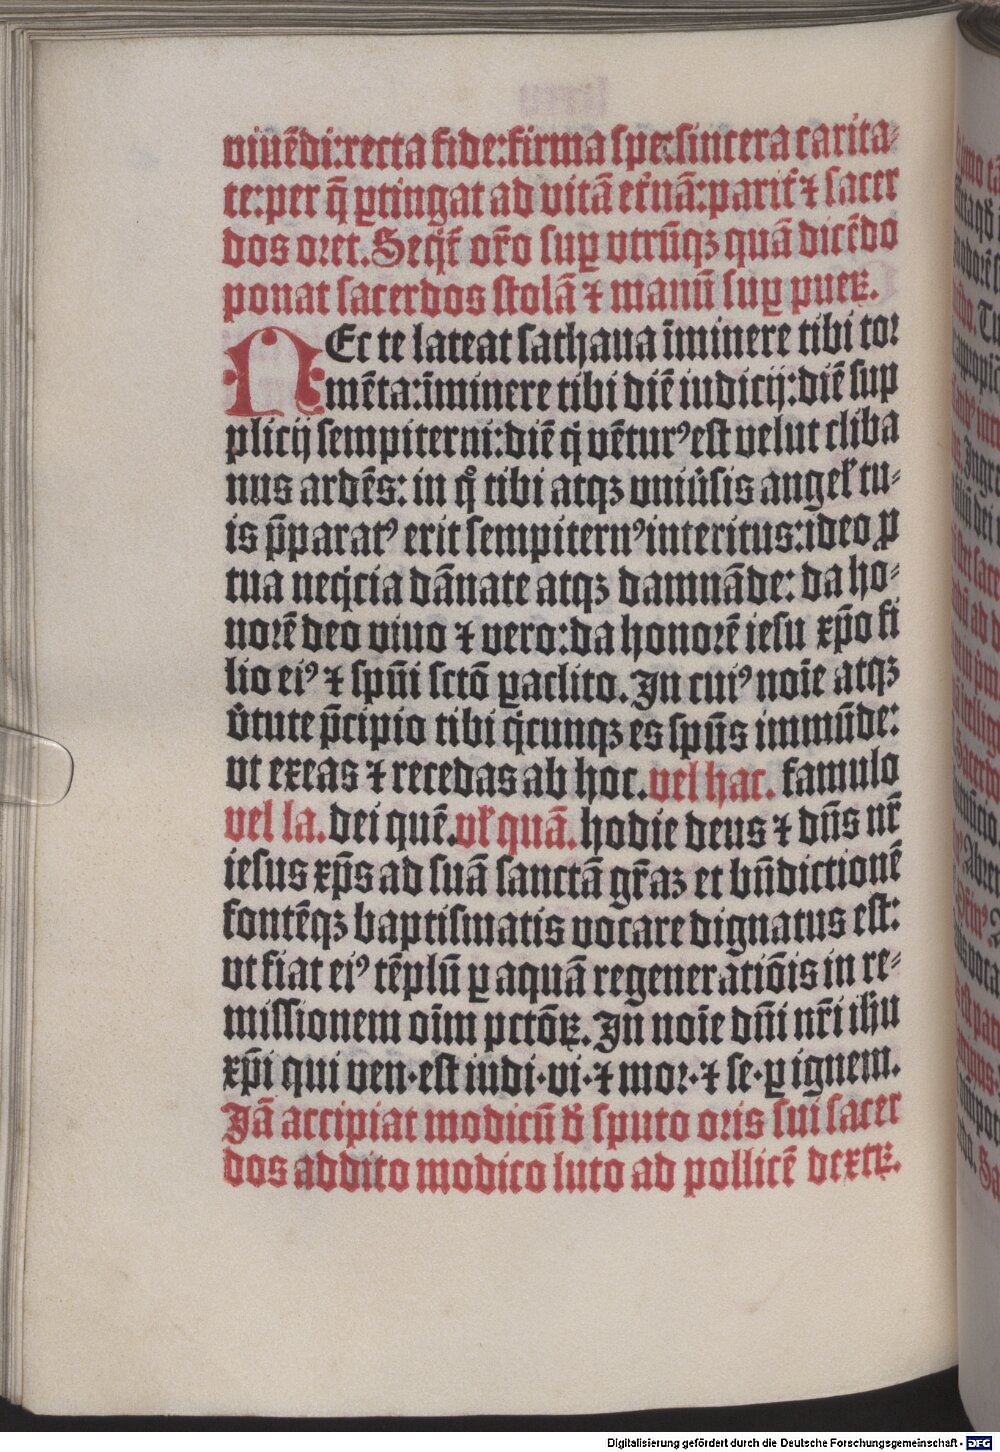 viuēdi:recta fide:firma spe:sincera carita⸗
te:per q̄ ꝑtingat ad vitā et̄nā:parit̄ ⁊ sacer
dos oret. Seqit̄ or̄o suꝑ vtrūqꝫ quā dicēdo
ponat sacerdos stolā ⁊ manū suꝑ pueꝝ.
NEc te lateat sathana īminere tibi tor
mēta:īminere tibi diē iudicij:diē sup
plicij sempiterni:diē qͥ vētur⁹ est velut cliba
nus ardēs: in qͦ tibi atqꝫ vniu̓sis angel̓ tu⸗
is p̄parat⁹ erit sempitern⁹ interitus:ideo ꝓ
tua neqͥcia dānate atqꝫ damnāde: da ho⸗
norē deo viuo ⁊ vero:da honorē iesu xp̄o fi
lio ei⁹ ⁊ spūi sctō ꝑaclito. In cui⁹ noīe atqꝫ
v̓tute p̄cipio tibi qͥcunqꝫ es spūs immūde:
vt exeas ⁊ recedas ab hoc. vel hac. famulo
vel la. dei quē. vl̓ quā. hodie deus ⁊ dūs nr̄
iesus xp̄s ad suā sanctā gr̄aꝫ et bn̄dictionē
fontēqꝫ baptismatis vocare dignatus est:
vt fiat ei⁹ tēplū ꝑ aquā regeneratiōis in re⸗
missionem oīm pctōꝝ. In noīe dn̄i nr̄i ihu̅
xp̄i qui ven·est iudi·vi·⁊ mor·⁊ se·ꝑ ignem.
Iā accipiat modicū d̓ sputo oris sui sacer
dos addito modico luto ad pollicē dextꝝ.
Digitalisierung gefördert durch die Deutsche Forschungsgemeinschaft - DFG